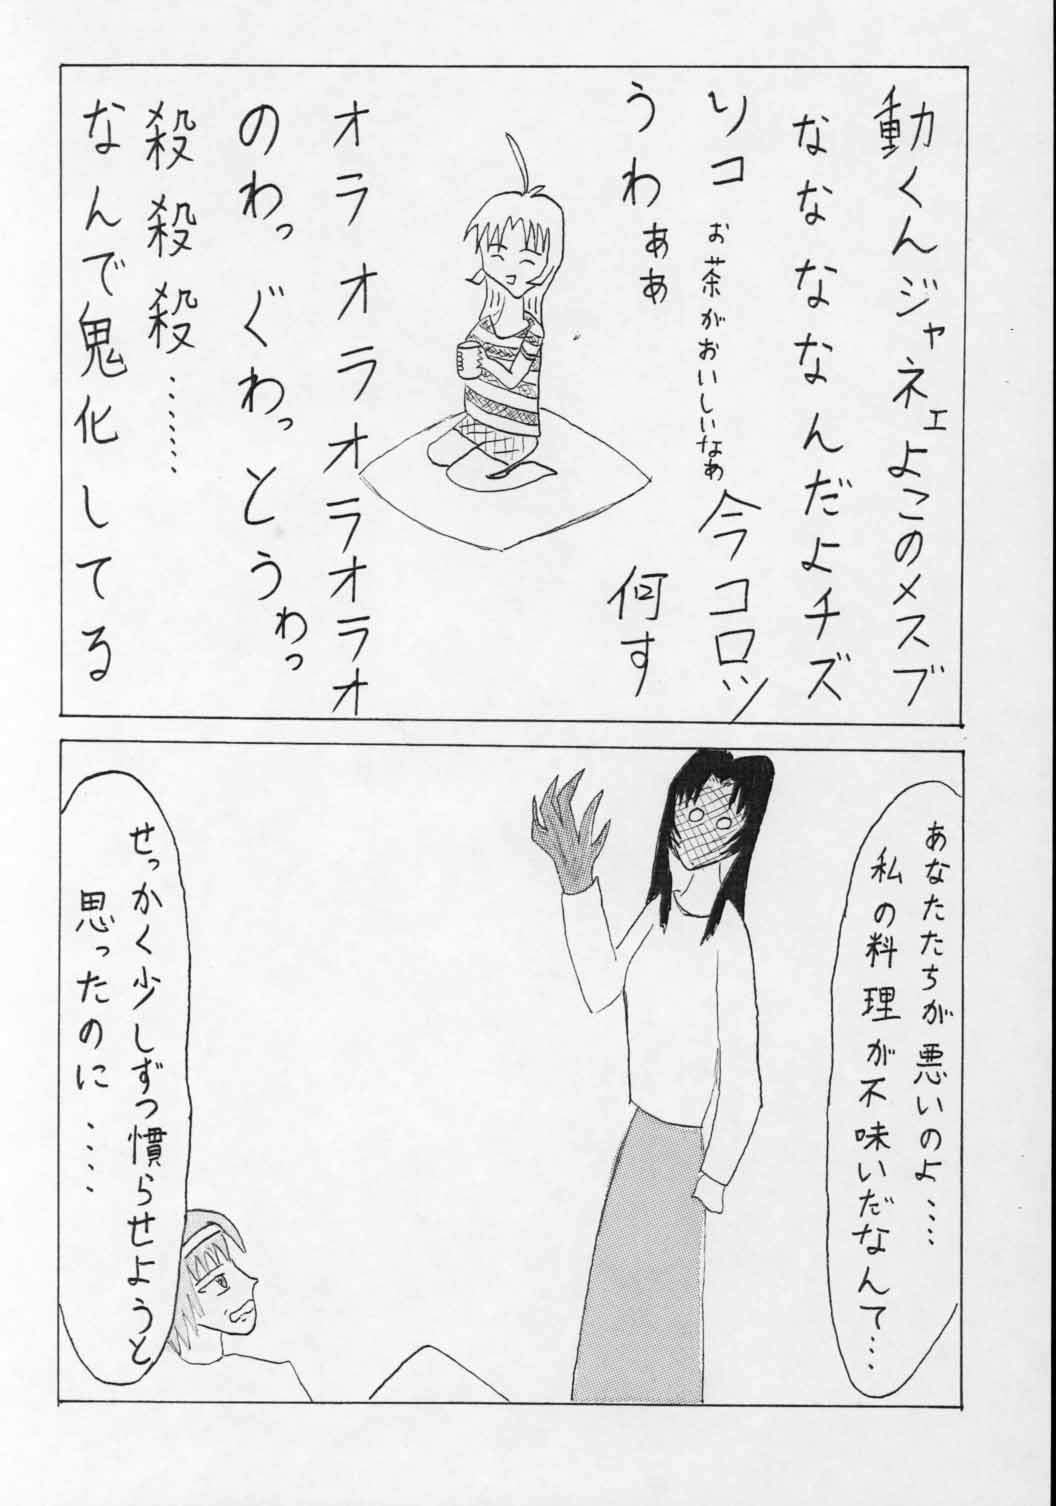 動くんジャネェよこのメスブ
ななななななんだよチズ
ソコ
お茶がおいしいなあ
今コロッ
うわぁぁ
何す
オラオオラオラオラオラオ
のわっぐわっとうわっ
殺殺殺………
なんで鬼化してる
あなたたちが悪いのよ……
私の料理が不味いだなんて…
せっかく少しずつ慣らせようと
思ったのに……